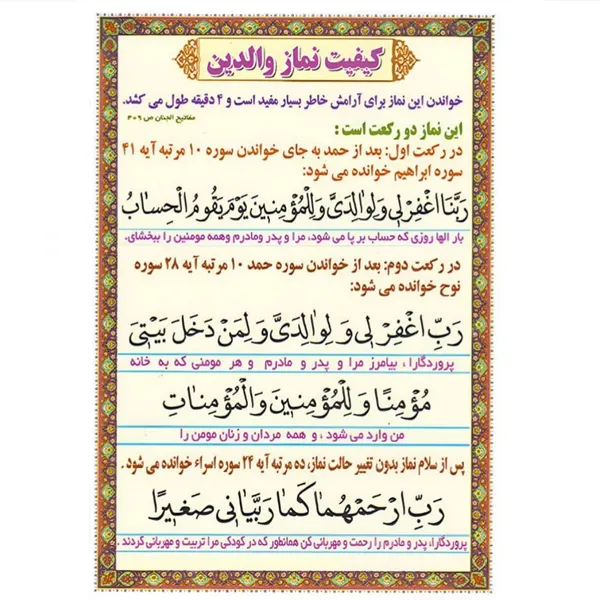 کیفیت نماز والدین
خواندن این نماز برای آرامش خاطر بسیار مفید است و ۴ دقیقه طول می کشد.
مفاتیح الجنان ص ۴۰۹
این نماز دو رکعت است :
در رکعت اول: بعد از حمد به جای خواندن سوره ۱۰ مرتبه آیه ۴۱
سوره ابراهیم خوانده می شود:
رَبَّنَا اغْفِرْ لی وَ لِوالِدَیَّ وَ لِلْمُؤْمِنینَ یَوْمَ یَقُومُ الْحِسابُ
بار الها روزی که حساب بر پا می شود، مرا و پدر ومادرم وهمه مومنین را ببخشای.
در رکعت دوم: بعد از خواندن سوره حمد ۱۰ مرتبه آیه ۲۸ سوره
نوح خوانده می شود:
رَبِّ اغْفِرْ لی وَ لِوالِدَیَّ وَ لِمَنْ دَخَلَ بَیْتِیَ
پروردگارا، بیامرز مرا و پدر و مادرم و هر مومنی که به خانه
مُؤْمِنًا وَ لِلْمُؤْمِنینَ وَالْمُؤْمِناتِ
من وارد می شود ، و همه مردان و زنان مومن را
پس از سلام نماز بدون تغییر حالت نماز، ده مرتبه آیه ۲۴ سوره اسراء خوانده می شود .
رَبِّ ارْحَمْهُما کَما رَبَّیانی صَغیرًا
پروردگارا، پدر و مادرم را رحمت و مهربانی کن همانطور که در کودکی مرا تربیت و مهربانی کردند .